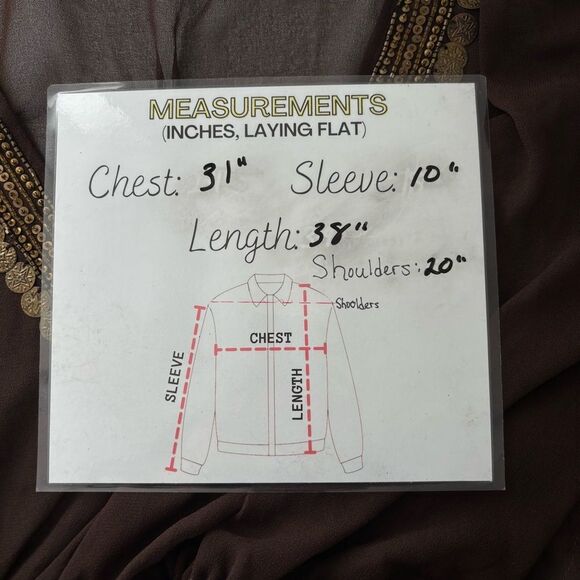 MEASUREMENTS
(INCHES, LAYING FLAT)
Chest: 31" Sleeve: 10"
Length: 38"
Shoulders: 20"
Shoolders
CHEST
SLEEVE
LENGTH